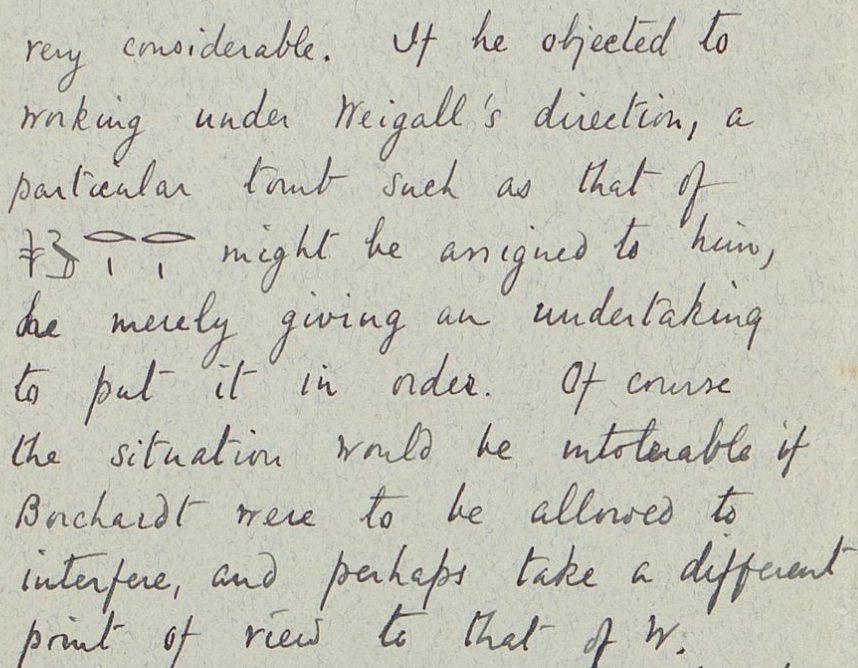 very considerable. If he objected to
working under Weigall's direction, a
particular tomb such as that of
might be assigned to him,
he merely giving an undertaking
to put it in order. Of course
the situation would be intolerable if
Borchardt were to be allowed to
interfere, and perhaps take a different
point of view to that of W.